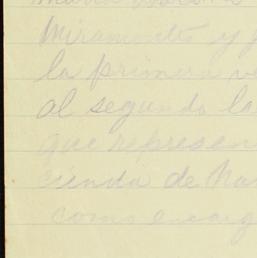 Miramontes y
la primera
al segundo la
que represen
cienda de
como encarg